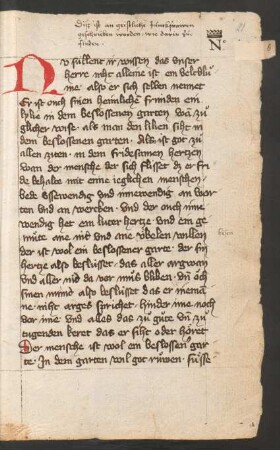 Diss ist an geistliche junckfrawen
geschriben worden, wie darin zů
finden.
N
Nu sullent ir wissen das vnser
herre niht alleine ist ein veltblů
me also er sich selben nemmet
Er ist ouch sinen heimliche frúnden ein
lylie in dem beslossenen garten vñ zů
glicher wise als man den lilien siht in
dem beslossenen garten. Als ist got zů
allen ziten in dem fridesamen hertzen
wan der mensche der sich flisset dz er fri
de behalte mit eime ieglichen menschen
bede vssewendig vnd innewendig an wor
ten vnd an wercken vnd der ouch inne
wendig het ein luter hertze vnd ein ge
můte ane nit vnd ane úbelen willen
der ist wol ein beslossener garte. der sin
hertze also beslússet das aller argwon
vnd aller nid da vor můs bliben vñ ouch
sinen mund also beslússet das er niema
ne niht arges sprichet hinder ime noch
vor ime vnd alles das zů gůte vñ zů
tugenden keret das er siht oder höret
Der mensche ist wol ein beslossener gar
te. In dem garten wil got růwen. sússe